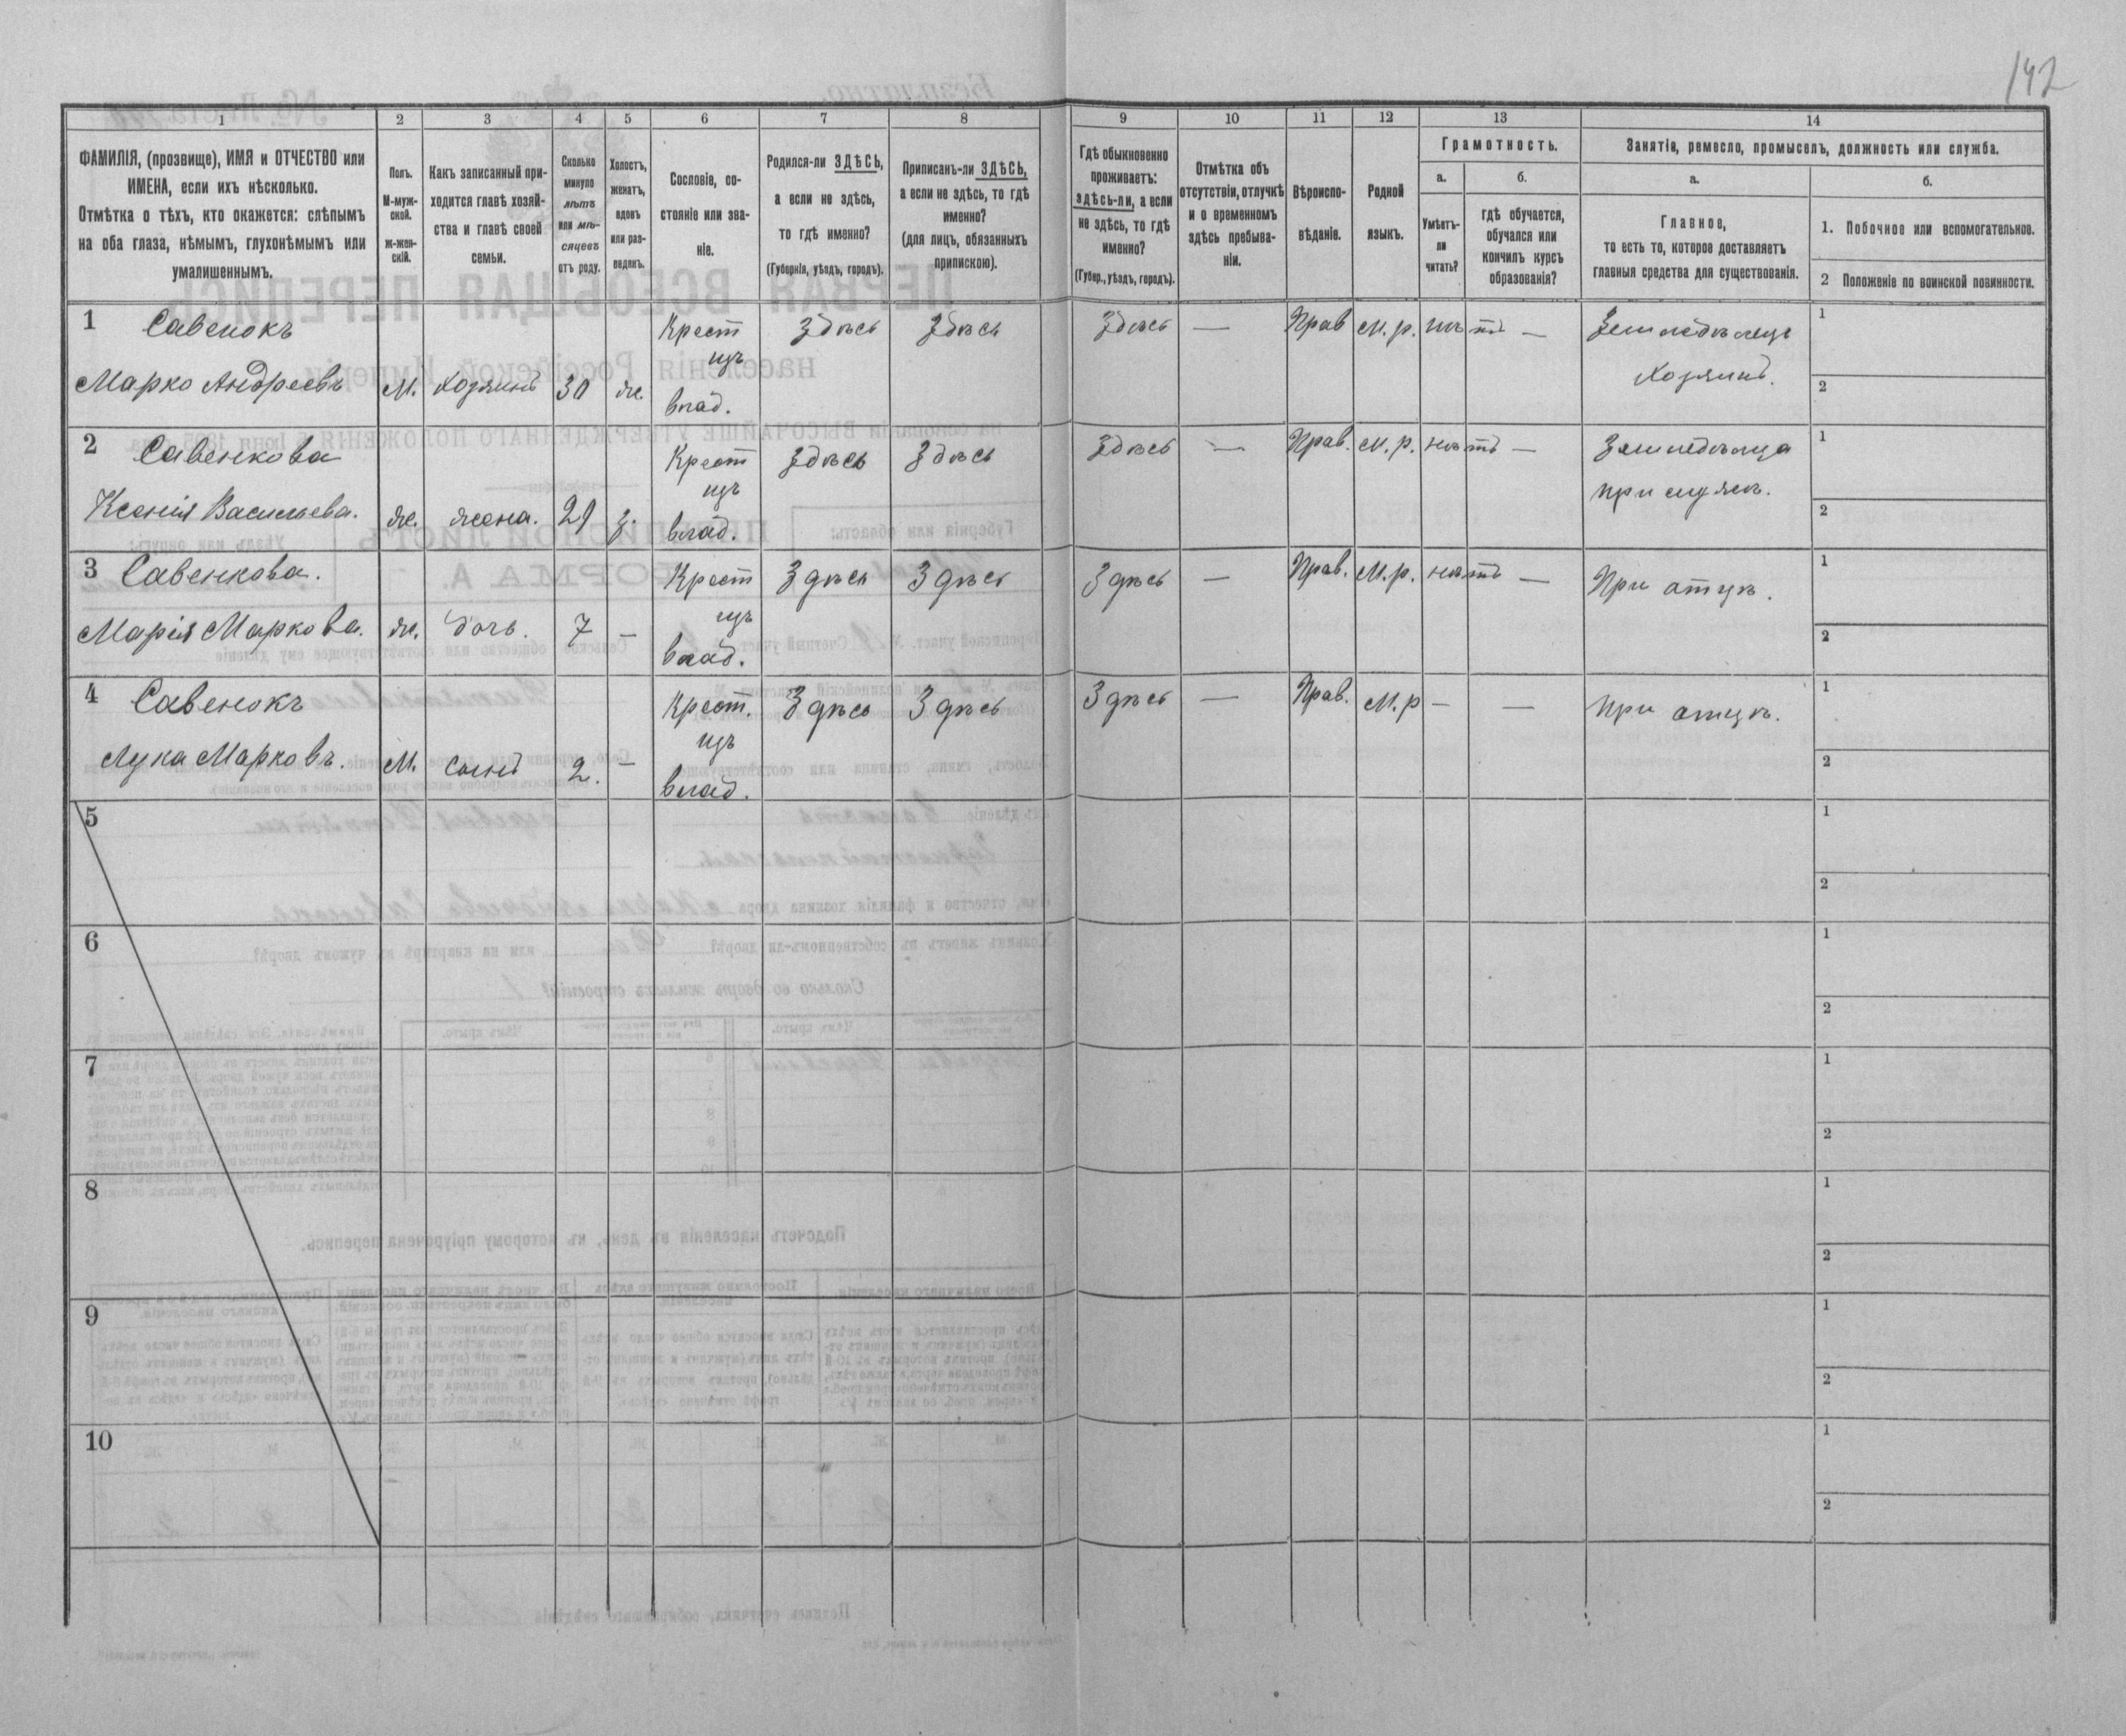 142
1
2
3
4
5
6
7
8
9
10
11
12
13
14
ФАМИЛІЯ, (прозвище), ИМЯ и ОТЧЕСТВО или
ИМЕНА, если ихъ нѣсколько.
Отмѣтка о тѣхъ, кто окажется: слѣпымъ
на оба глаза, нѣмымъ, глухонѣмымъ или
умалишеннымъ.
Полъ.
М-муж-
ской.
ж-жен-
скій.
Какъ записанный при-
ходится главѣ хозяй-
ства и главѣ своей
семьи.
Сколько
минуло
лѣтъ
или мѣ-
сяцевъ
отъ роду.
Холостъ,
женатъ,
вдовъ
или раз-
веденъ.
Сословіе, со-
стояніе или зва-
ніе.
Родился-ли ЗДѢСЬ,
а если не здѣсь,
то гдѣ именно?
(Губернія, уѣздъ, городъ).
Приписанъ-ли ЗДѢСЬ,
а если не здѣсь, то гдѣ
именно?
(для лицъ, обязанныхъ
припискою).
Гдѣ обыкновенно
проживаетъ:
здѣсь-ли, а если
не здѣсь, то гдѣ
именно?
(Губер., уѣздъ, городъ).
Отмѣтка объ
отсутствіи, отлучкѣ
и о временномъ
здѣсь пребыва-
ніи.
Вѣроиспо-
вѣданіе.
Родной
языкъ.
Грамотность.
а.
Умѣетъ-
ли
читать?
б.
гдѣ обучается,
обучался или
кончилъ курсъ
образованія?
Занятіе, ремесло, промыселъ, должность или служба.
а.
Главное,
то есть то, которое доставляетъ
главныя средства для существованія.
б.
1. Побочное или вспомогательное.
2 Положеніе по воинской повинности.
1 Савенокъ
Марко Андреевъ М. Хозяинъ 30 ж.
Крест
изъ
влад.
Здѣсь Здѣсь Здѣсь — Прав М.р. нѣтъ —
Земледѣлецъ
Хозяинъ.
1
2
2 Савенкова
Ксенія Васильева. ж. жена. 29 з.
Крест
изъ
влад.
Здѣсь Здѣсь Здѣсь — Прав. М.р. нѣтъ —
Земледѣлица
при мужѣ.
1
2
3 Савенкова.
Марія Маркова. ж. дочь. 7 —
Крест
изъ
влад.
Здѣсь Здѣсь Здѣсь — Прав. М.р. нѣтъ —
При отцѣ.
1
2
4 Савенокъ
Лука Марковъ. М. Сынъ 2. —
Крест.
изъ
влад.
Здѣсь Здѣсь Здѣсь — Прав. М.р — —
При отцѣ.
1
2
5
1
2
6
1
2
7
1
2
8
1
2
9
1
2
10
1
2